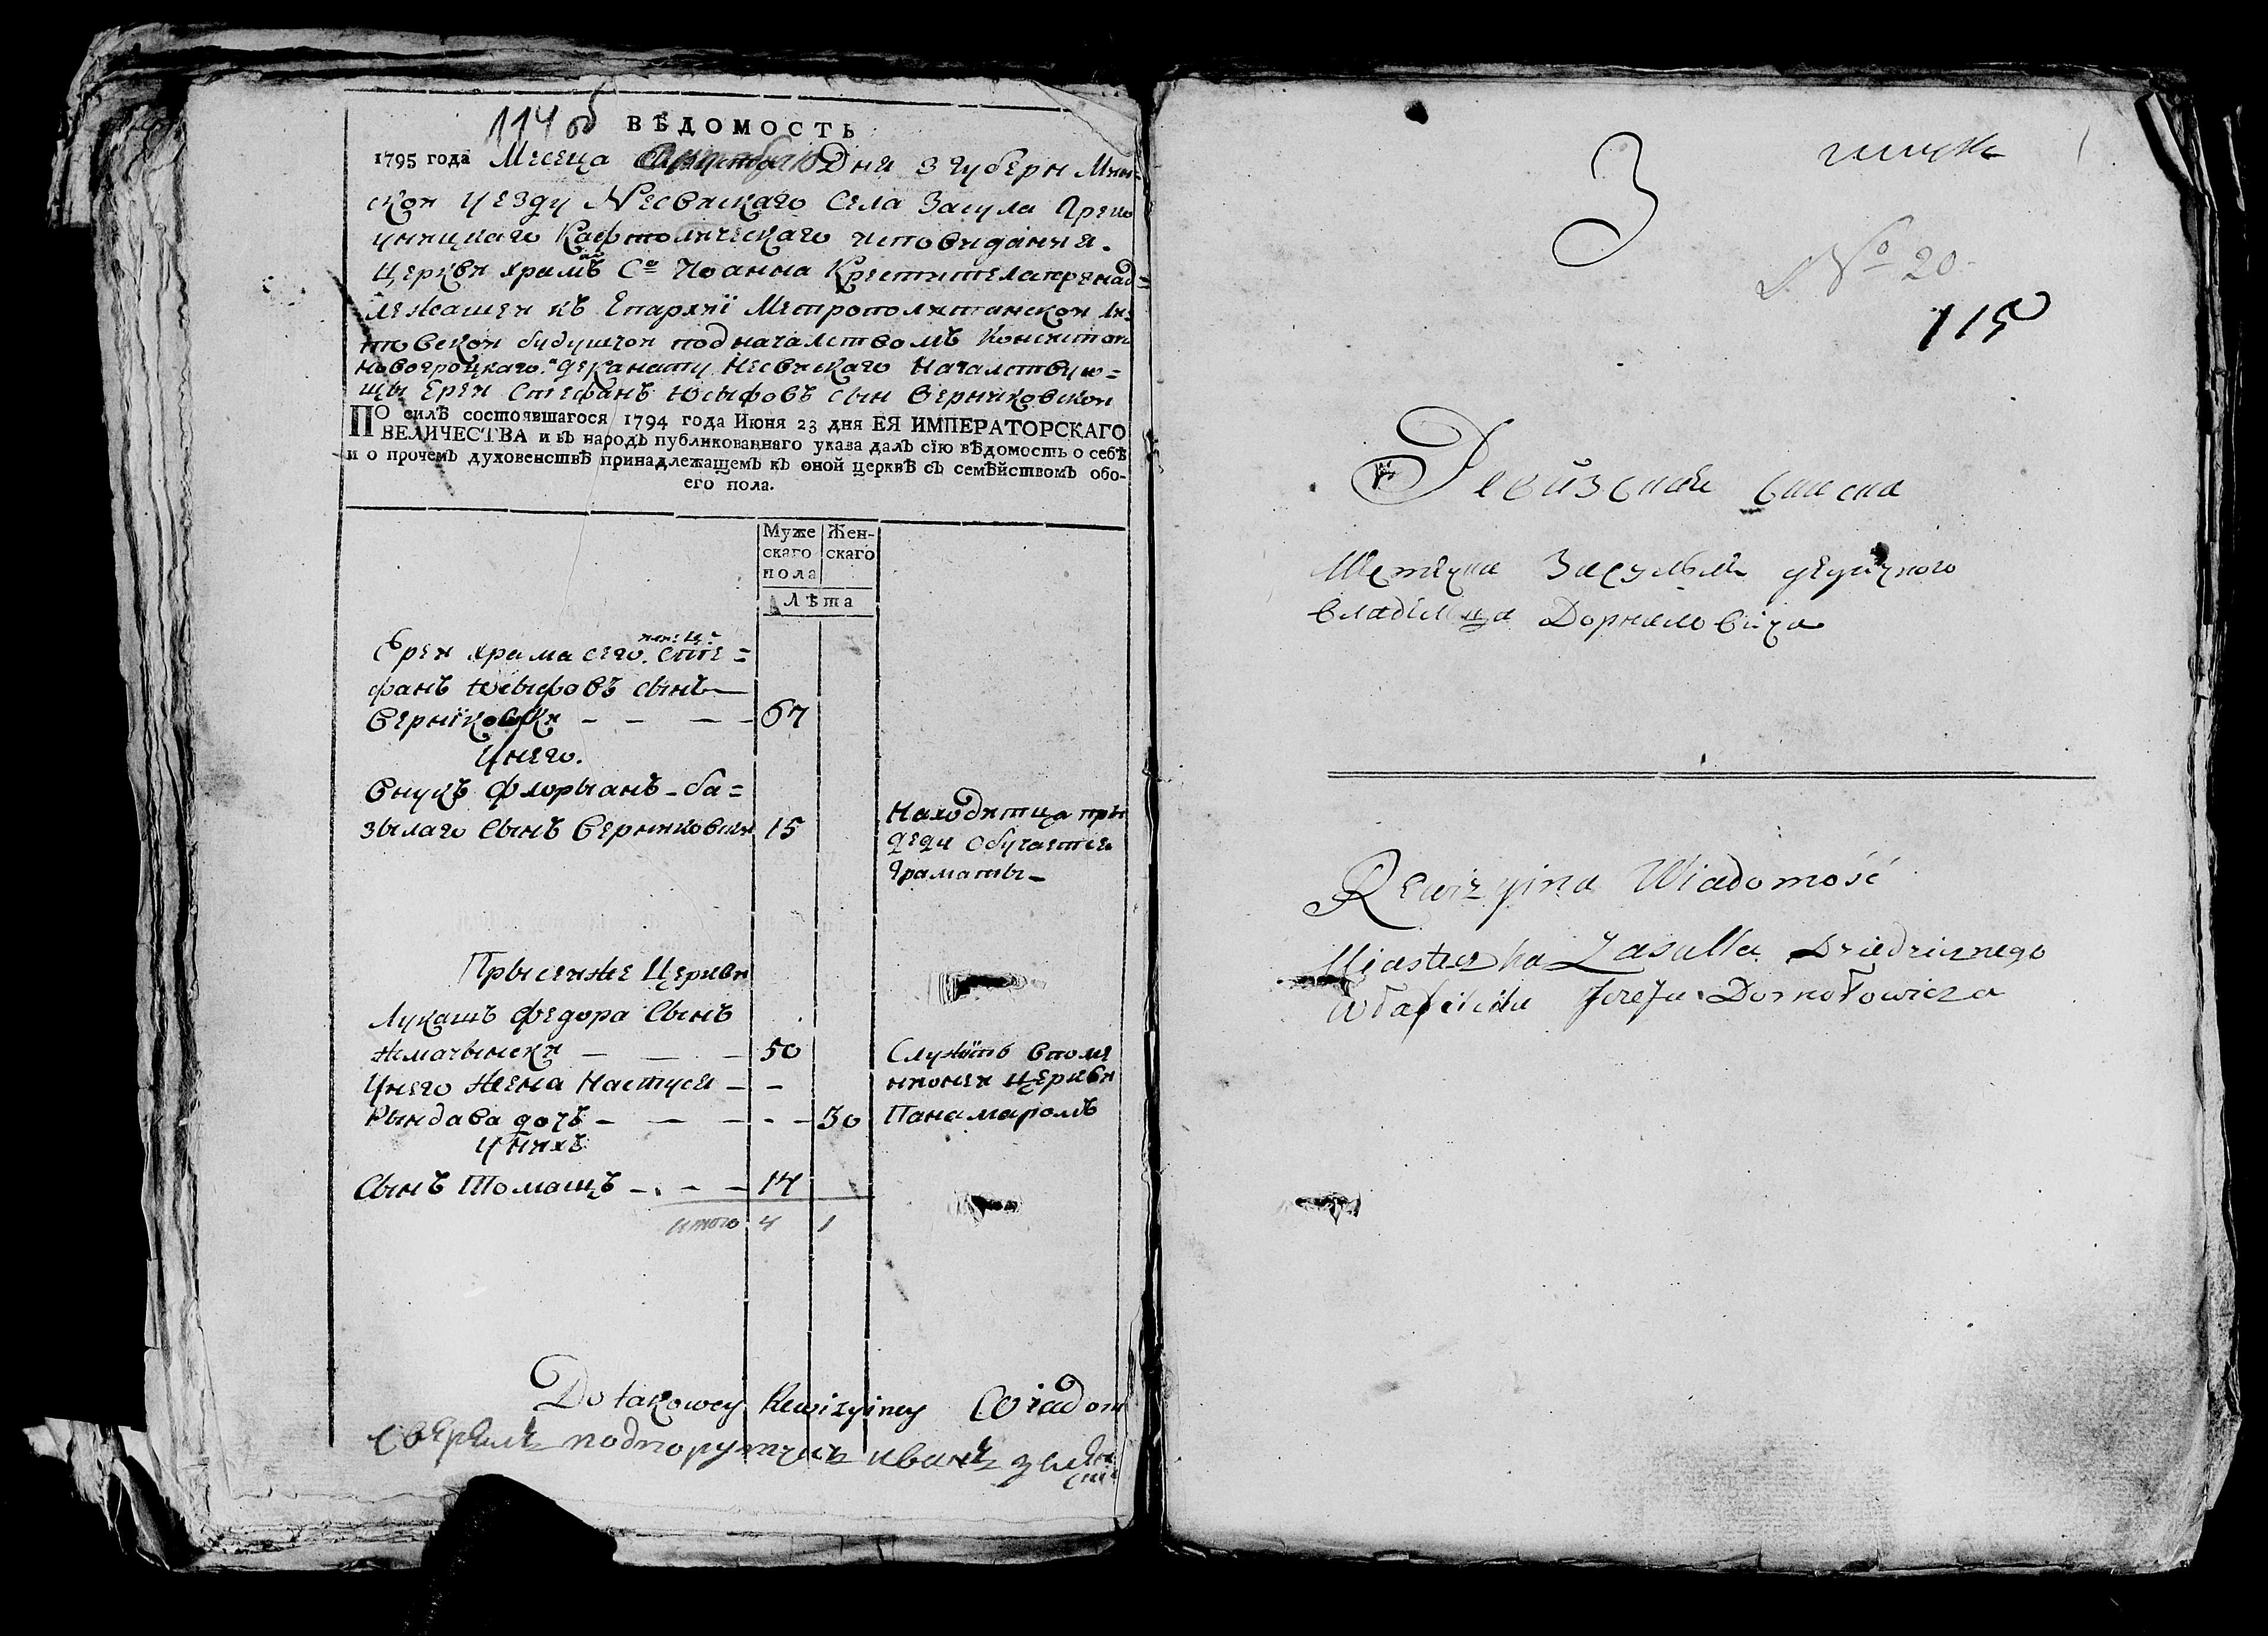 114 об
ВѢДОМОСТЬ
1795 года Месеца Дня 3 Губерн Мин-
скои Уезду Несвискаго Села Засула Греко
униицкаго Кафтолическаго исповиданыя.
Церкви храмъ Сᵒ Иоанна Крестителапренад=
лежащеи къ Епархиї Метрополитанскои Ли=
товскои будущои подначалствомъ Консистои
Новогроцкаго деканату Несвискаго Началствую=
щы Ереи Стефанъ Юсыфовъ сын Верниковскои
ПО силѣ состоявшагося 1794 года Июня 23 дня ЕЯ ИМПЕРАТОРСКАГО
ВЕЛИЧЕСТВА и въ народъ публикованнаго указа далъ сїю вѣдомость о себѣ
и о прочемъ духовенствѣ принадлежащемъ къ оной церквѣ съ семѣйствомъ обо-
его пола.
Муже Жен-
скаго скаго
пола
Лѣта
Ереи храма сего. Сте=
фанъ Юсыфовъ сынъ
Вернїковски - - - - 67
Унего.
Внукъ Флорыанъ - ба=
зылаго Сынъ Верниковски 15
Находитца пры
деди обучаетса
Граматы -
Прысенже Церкви
Лукашъ Федора Сынъ
Жмачынски - - - 50
Унего жена Настуся - -
Рындава дочъ - - - - - 30
Служитъ вполе
нионеи церкви
Панамаромъ
Унихъ
Сынъ Томашъ - - - 14
итого 4 1
Do takowey Rewizyiney Wiadom
Сверялъ подпорутчикъ иванъ
3
№ 20
115
Ревизская сказка
Местечка Засулья дедичного
владелца Дорнеловича
Rewizyina Wiadomość
Miasteczka Zasulla Dziedzicznego
Własciciela Jozefa Dornołowicza